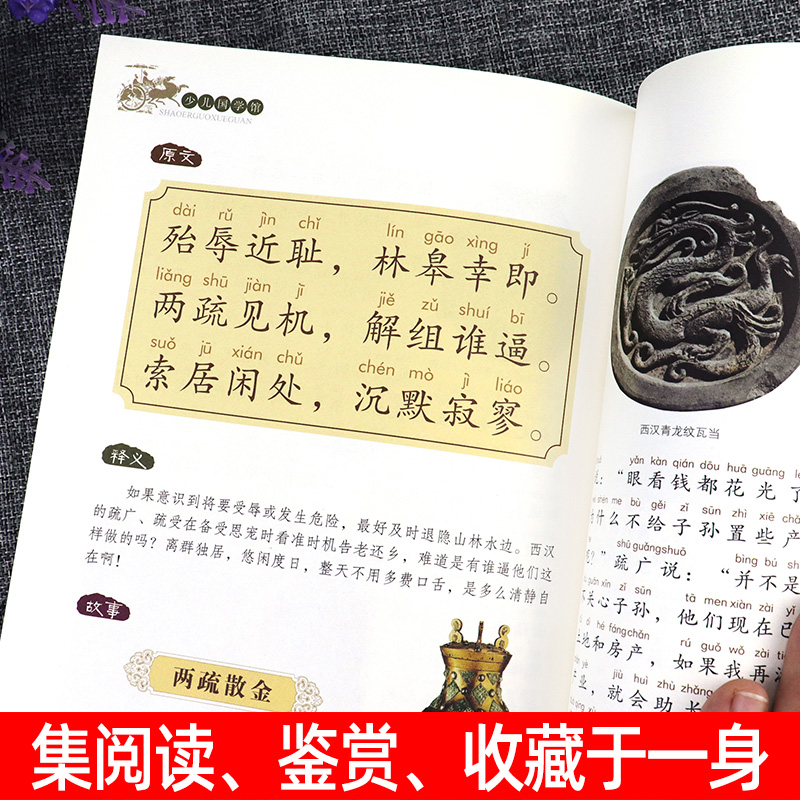 少儿国学馆
SHAOERGUOXUEGUAN
原文
dài rǔ jìn chǐ lín gāo xìng jí
殆辱近耻，林皋幸即。
liǎng shū jiàn jī jiě zǔ shuí bī
两疏见机，解组谁逼。
suǒ jū xián chǔ chén mò jì liáo
索居闲处，沉默寂寥。
释义
如果意识到将要受辱或发生危险，最好及时退隐山林水边。西汉
的疏广、疏受在备受恩宠时看准时机告老还乡，难道是有谁逼他们这
样做的吗？离群独居，悠闲度日，整天不用多费口舌，是多么清静自
在啊！
故事
两疏散金
西汉青龙纹瓦当
yǎn kàn qián dōu huā guāng
：“眼看钱都花光了
shén me bù gěi zǐ sūn zhì xiē
什么不给子孙置些产
shū guǎng shuō bìng bú shì
？”疏广说：“并不是
guān xīn zǐ sūn tā men xiàn zài yǐ
关心子孙，他们现在已
hé fáng chǎn rú guǒ wǒ zài
地和房产，如果我再
yè jiù huì zhù zhǎng
业，就会助长
集阅读、鉴赏、收藏于一身